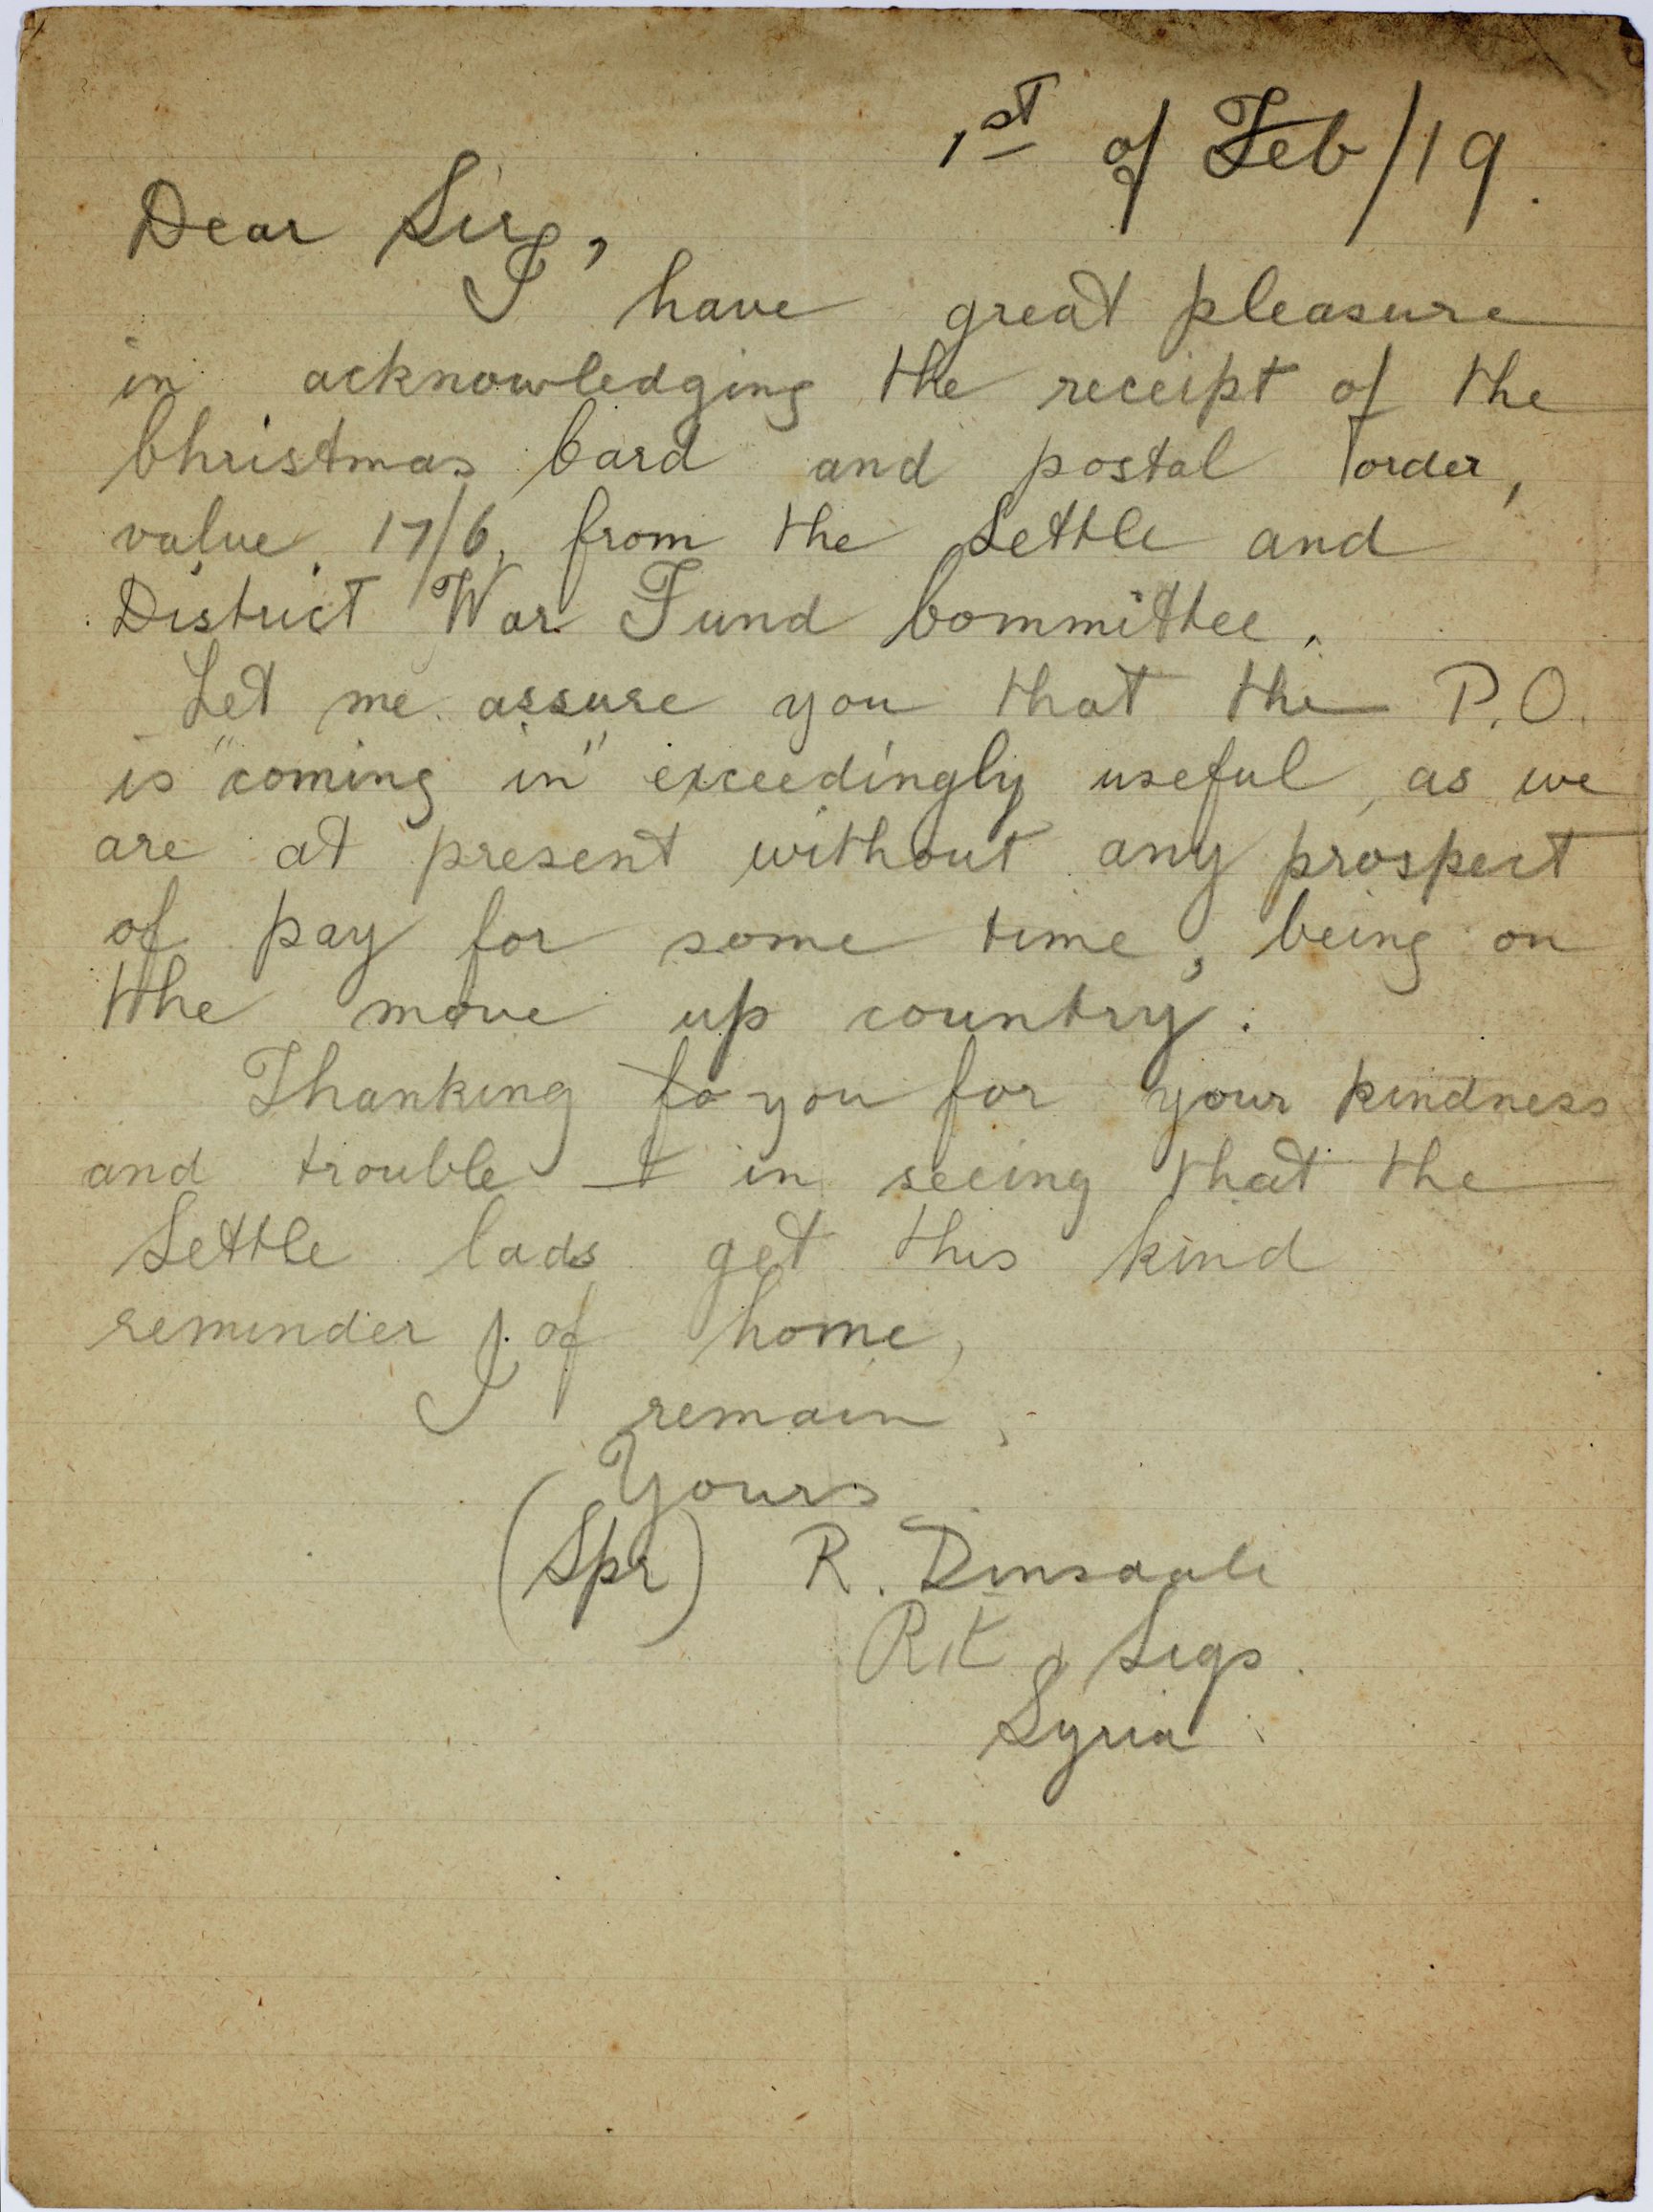 1st of Feb/19.
Dear Sir,
I have great pleasure
in acknowledging the receipt of the
Christmas Card and postal order,
value 17/6, from the Settle and
District War Fund Committee.
Let me assure you that the P.O.
is "coming in" exceedingly useful, as we
are at present without any prospect
of pay for some time, being on
the move up country.
Thanking fo you for your kindness
and trouble t in seeing that the
Settle lads get this kind
reminder of home,
I remain,
Yours
(Spr) R. Dinsdale
Sigs.
Syria